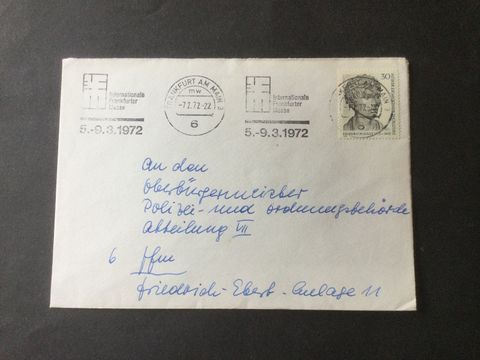 Internationale
Frankfurter
Messe
5.-9.3.1972
FRANKFURT AM MAIN 3
mw
-7.2.72.-22
6
Internationale
Frankfurter
Messe
5.-9.3.1972
30
An den
Oberbürgermeister
Polizei- und Ordnungsbehörde
Abteilung VII
6 Ffm
Friedrich-Ebert-Anlage 11